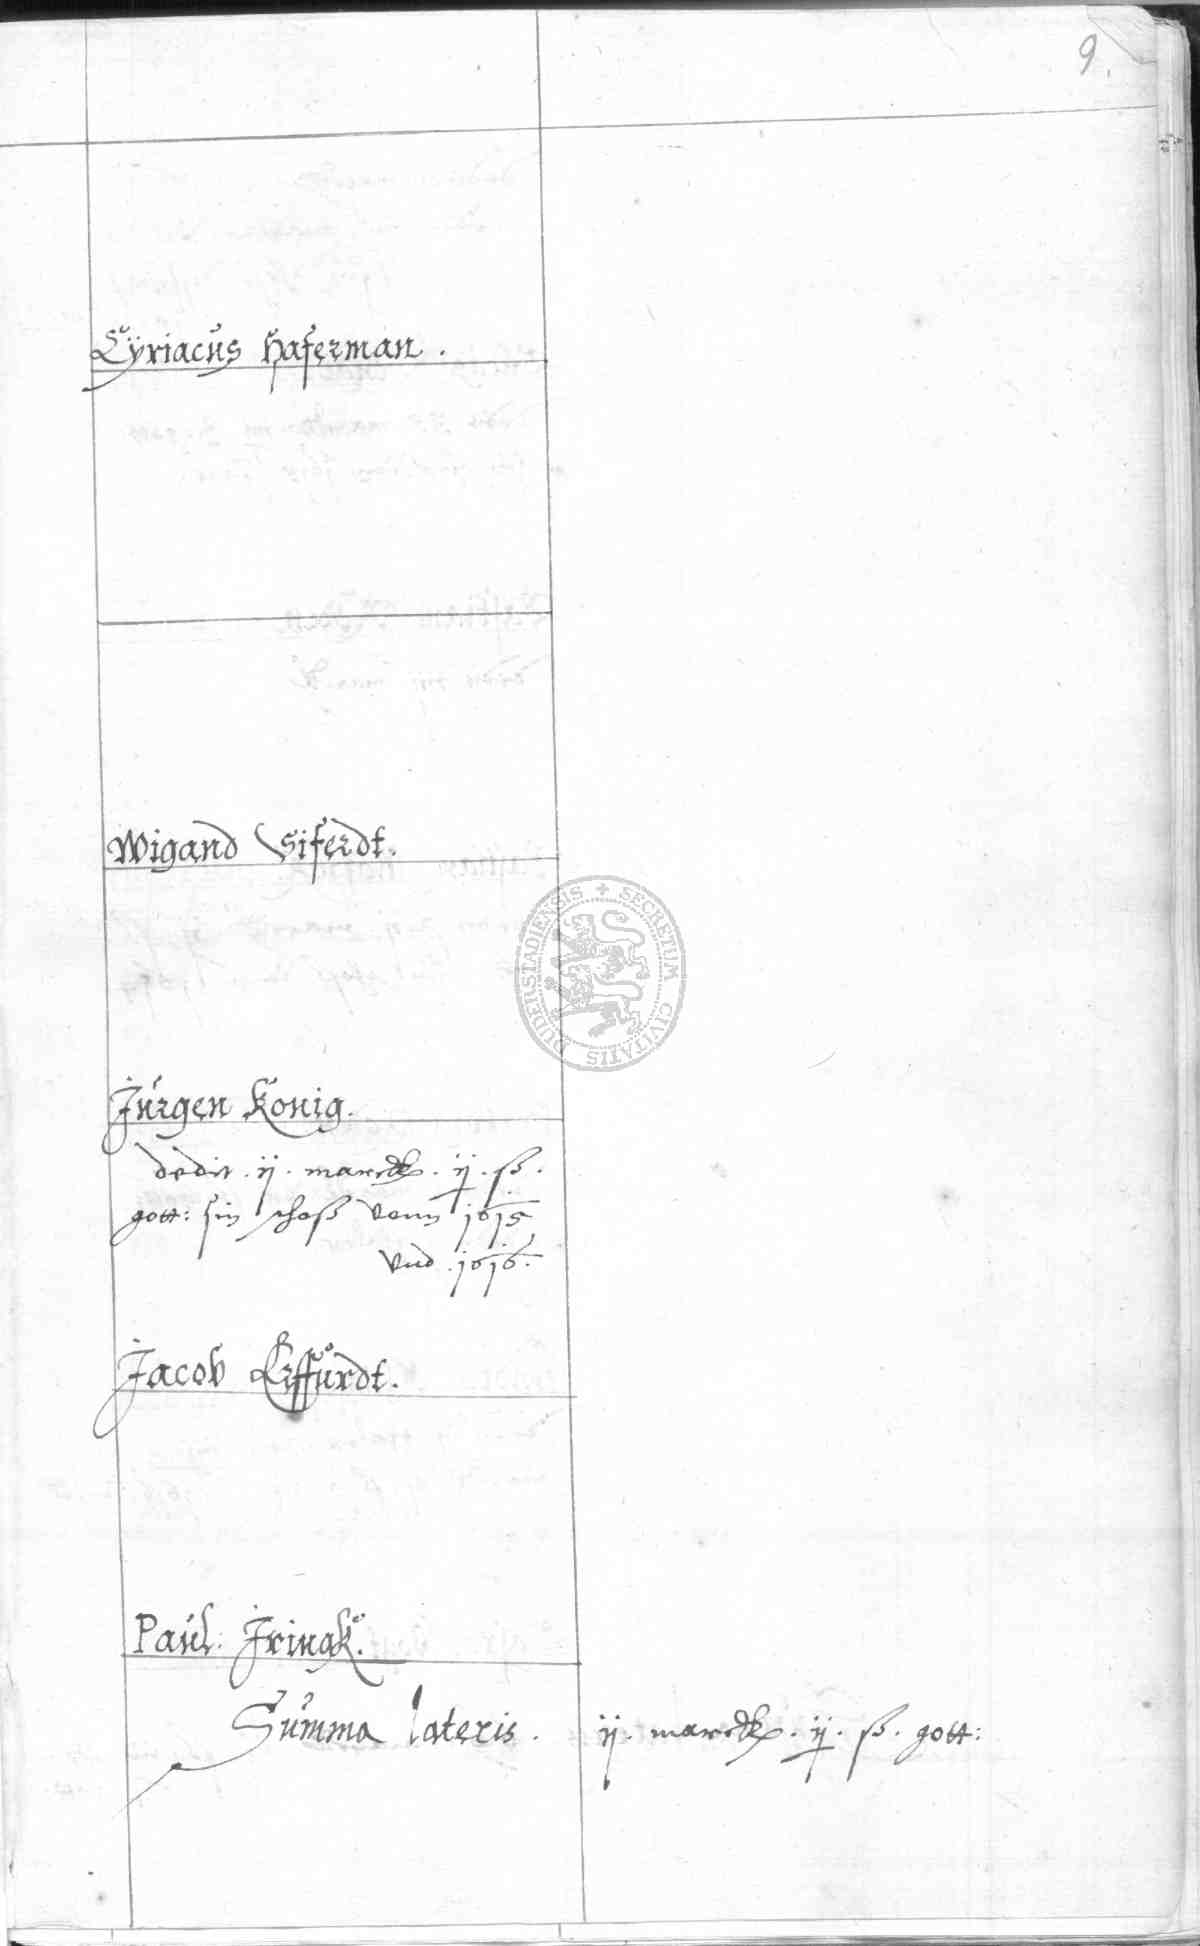 9.
Cÿriacus Haferman.
Wigand Siferdt.
DUDERSTADIENSIS + SECRETUM CIVITATIS
Jürgen König.
dedit . ij . marck . ij . ß .
gott: sin schoß vonn 1615
vnd . 1616.
Jacob Erffurdt.
Paul: Jringk.
Summa lateris . ij . marck . ij . ß . gott: